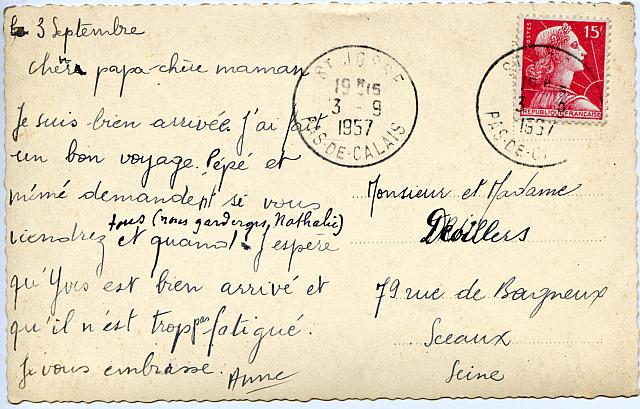 le 3 Septembre
Chers papa-chère maman
Je suis bien arrivée. J'ai fait
un bon voyage. Pépé et
mémé demandent si vous
tous (nous garderons Nathalie)
viendrez et quand! J'espère
qu'Yves est bien arrivé et
qu'il n'est trop pas fatigué.
Je vous embrasse. Anne
ST JOSSE
19 H 15
3 - 9
1957
PAS-DE-CALAIS
POSTES
15F
REPUBLIQUE FRANÇAISE
3 - 9
1957
PAS-DE-C
Monsieur et Madame
79 rue de Bagneux
Sceaux
Seine